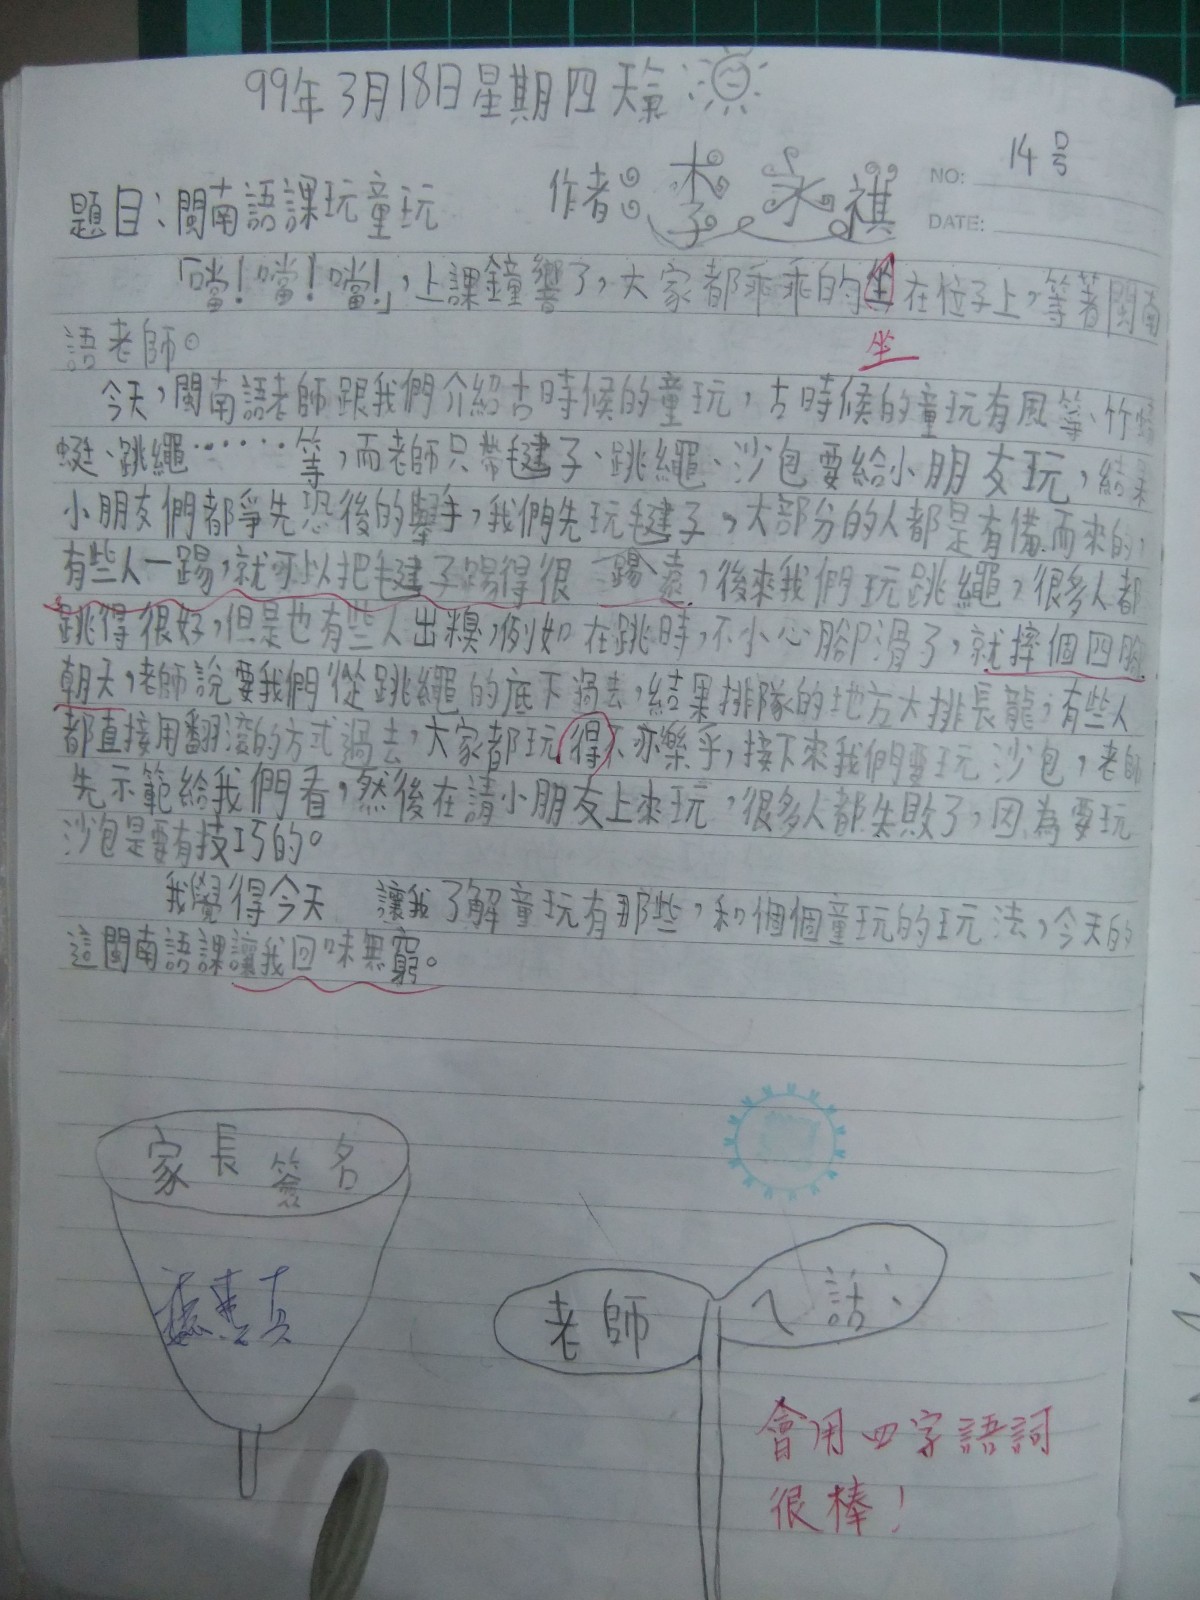 99年3月18日星期四天氣
NO: 14号
題目:閩南語課玩童玩
作者:李永祺
DATE:
「噹!噹!噹!」,上課鐘響了,大家都乖乖的坐在位子上,等著閩南
語老師。
坐
今天,閩南語老師跟我們介紹古時候的童玩,古時候的童玩有風箏、竹蜻
蜓、跳繩……等,而老師只帶毽子、跳繩、沙包要給小朋友玩,結果
小朋友們都爭先恐後的舉手,我們先玩毽子,大部分的人都是有備而來的,
有些人一踢,就可以把毽子踢得很 ,後來我們玩跳繩,很多人都
跳得很好,但是也有些人出糗,例如在跳時,不小心腳滑了,就摔個四腳
朝天,老師說要我們從跳繩的底下過去,結果排隊的地方大排長龍,有些人
都直接用翻滾的方式過去,大家都玩得不亦樂乎,接下來我們要玩沙包,老師
先示範給我們看,然後在請小朋友上來玩,很多人都失敗了,因為要玩
沙包是要有技巧的。
我覺得今天 讓我了解童玩有那些,和個個童玩的玩法,今天的
這閩南語課讓我回味無窮。
家長簽名
老師
ㄟ話:
會用四字語詞
很棒!